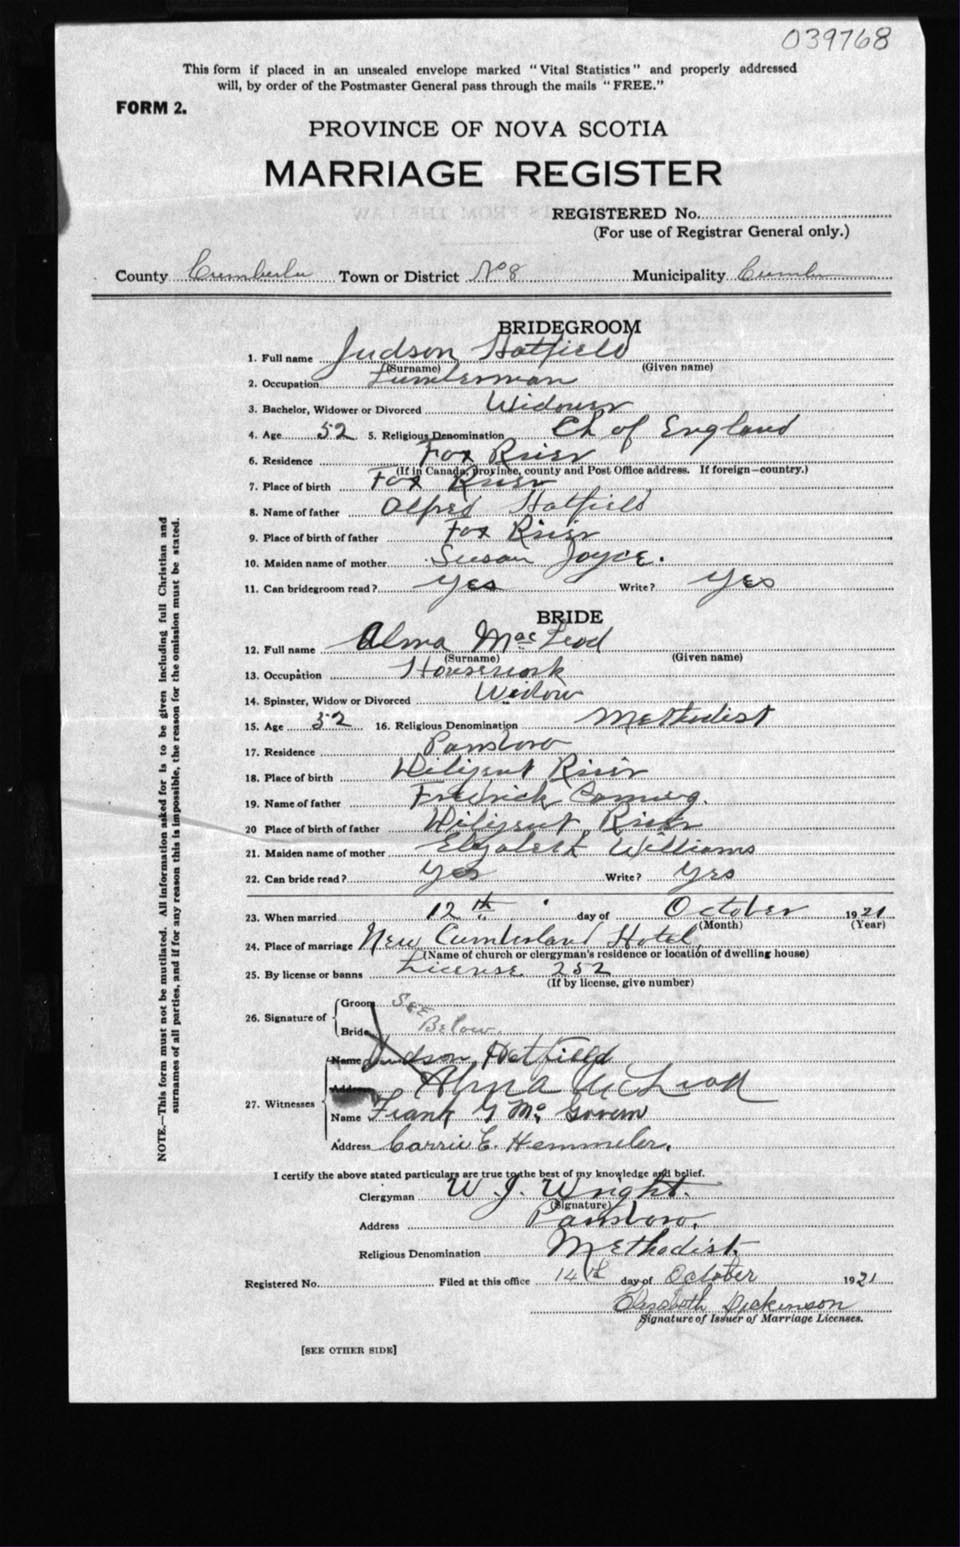 039768
This form if placed in an unsealed envelope marked "Vital Statistics" and properly addressed
will, by order of the Postmaster General pass through the mails "FREE."
FORM 2.
PROVINCE OF NOVA SCOTIA
MARRIAGE REGISTER
REGISTERED No.
(For use of Registrar General only.)
County Town or District No 8 Municipality
BRIDEGROOM
1. Full name Judson Hatfield
(Surname) (Given name)
2. Occupation Lumberman
3. Bachelor, Widower or Divorced Widower
4. Age 52 5. Religious Denomination Ch of England
6. Residence Fox River
(If in Canada, province, county and Post Office address. If foreign—country.)
7. Place of birth Fox River
8. Name of father Alfred Hatfield
9. Place of birth of father Fox River
10. Maiden name of mother Susan Joyce.
11. Can bridegroom read? Yes Write? Yes
BRIDE
12. Full name Alma MacLeod
(Surname) (Given name)
13. Occupation Housework
14. Spinster, Widow or Divorced Widow
15. Age 52 16. Religious Denomination Methodist
17. Residence Parrsboro
18. Place of birth Diligent River
19. Name of father Fredrick
20 Place of birth of father Diligent River
21. Maiden name of mother Elizabeth Williams
22. Can bride read? Yes Write? Yes
23. When married 12th day of October 1921
(Month) (Year)
24. Place of marriage New Cumberland Hotel
(Name of church or clergyman's residence or location of dwelling house)
25. By license or banns License 252
(If by license, give number)
26. Signature of Groom See
Bride Below
Name Judson Hatfield
Address Alma McLeod
27. Witnesses
Name Frank G McGovern
Address Carrie E. Hemmeler.
I certify the above stated particulars are true to the best of my knowledge and belief.
Clergyman W J. Wright.
(Signature)
Address Parrsboro.
Religious Denomination Methodist.
Registered No. Filed at this office 14th day of October 1921
Elizabeth Dickinson
Signature of Issuer of Marriage Licenses.
[SEE OTHER SIDE]
NOTE.—This form must not be mutilated. All information asked for is to be given including full Christian and
surnames of all parties, and if for any reason this is impossible, the reason for the omission must be stated.